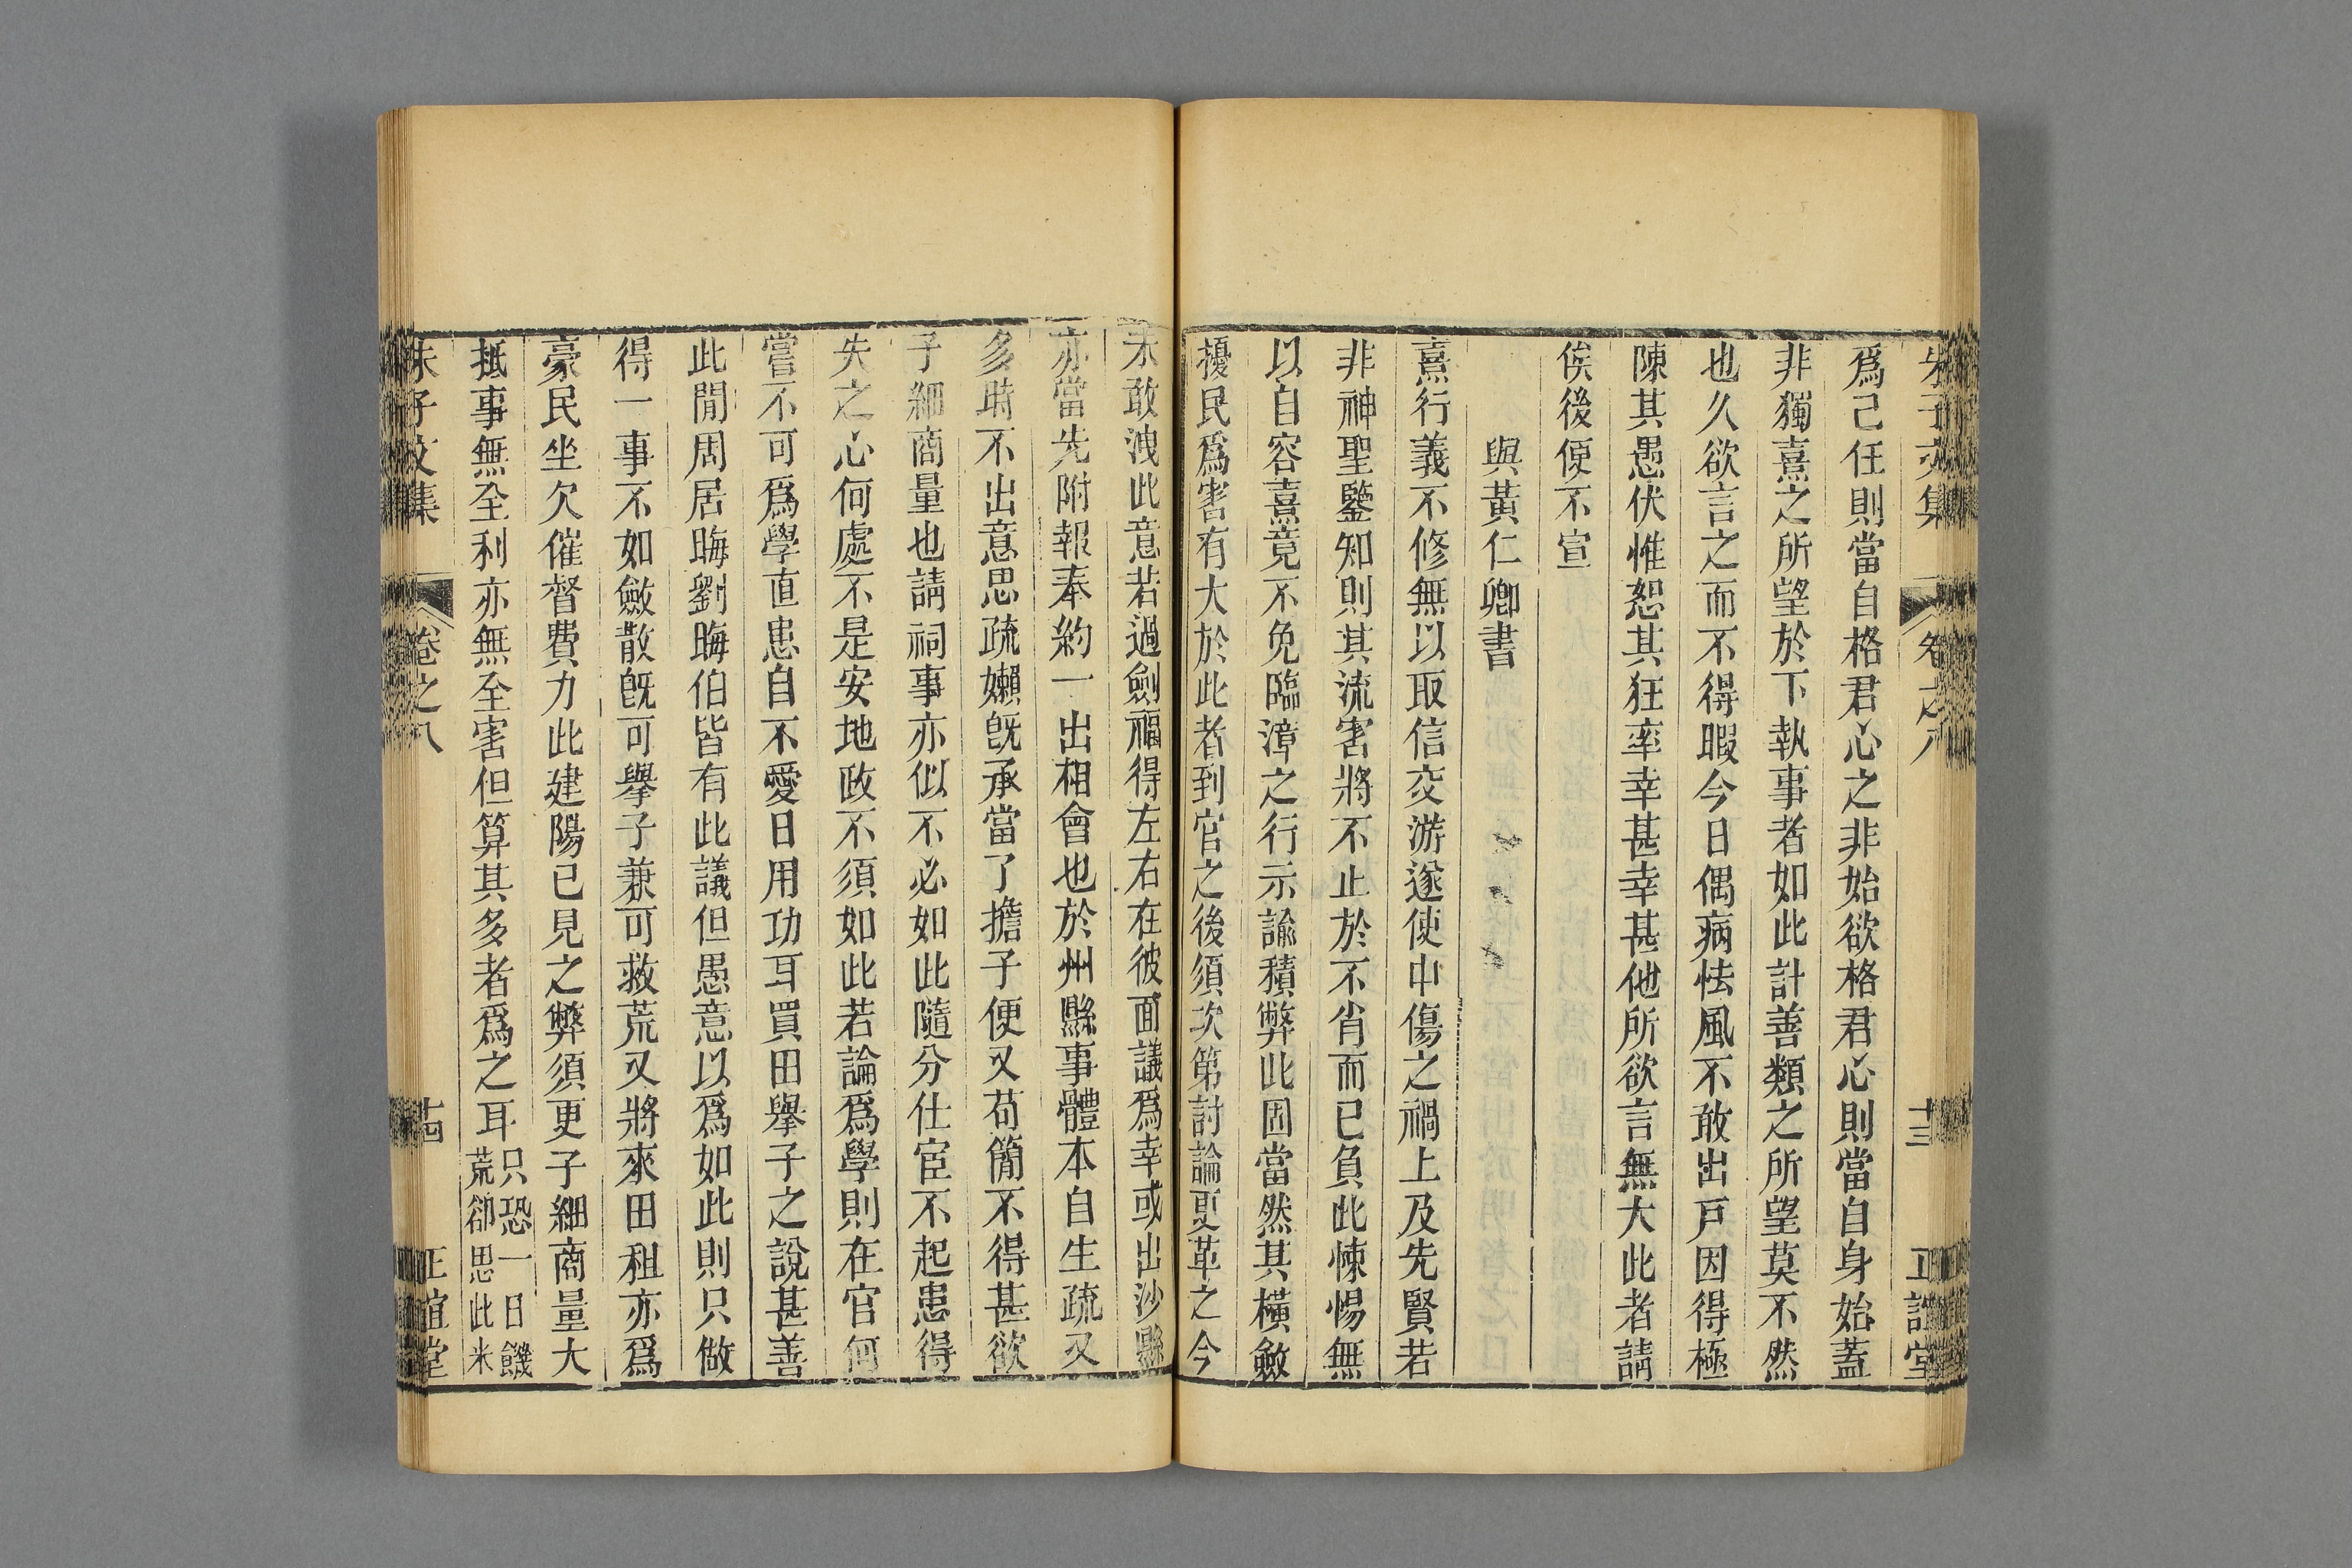 朱子文集
卷之八
十三
正誼堂
爲己任則當自格君心之非始欲格君心則當自身始蓋
非獨熹之所望於下執事者如此計善類之所望莫不然
也久欲言之而不得暇今日偶病怯風不敢出戸因得極
陳其愚伏惟恕其狂率幸甚幸甚他所欲言無大此者請
俟後便不宣
與黃仁卿書
熹行義不修無以取信交游遂使中傷之禍上及先賢若
非神聖鑒知則其流害將不止於不肖而已負此悚惕無
以自容熹竟不免臨漳之行示諭積弊此固當然其橫斂
擾民爲害有大於此者到官之後須次第討論更革之今
未敢洩此意若過劍福得左右在彼面議爲幸或出沙縣
亦當先附報奉約一出相會也於州縣事體本自生疏又
多時不出意思疏嬾旣承當了擔子便又苟簡不得甚欲
子細商量也請祠事亦似不必如此隨分仕宦不起患得
失之心何處不是安地政不須如此若論爲學則在官何
嘗不可爲學直患自不愛日用功耳買田舉子之說甚善
此閒周居晦劉晦伯皆有此議但愚意以爲如此則只做
得一事不如斂散旣可舉子兼可救荒又將來田租亦爲
豪民坐欠催督費力此建陽已見之弊須更子細商量大
抵事無全利亦無全害但算其多者爲之耳只恐一日饑
荒卻思此米
朱子文集
卷之八
十四
正誼堂